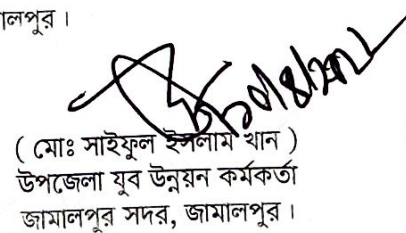 লপুর।
( মোঃ সাইফুল ইসলাম খান )
উপজেলা যুব উন্নয়ন কর্মকর্তা
জামালপুর সদর, জামালপুর।